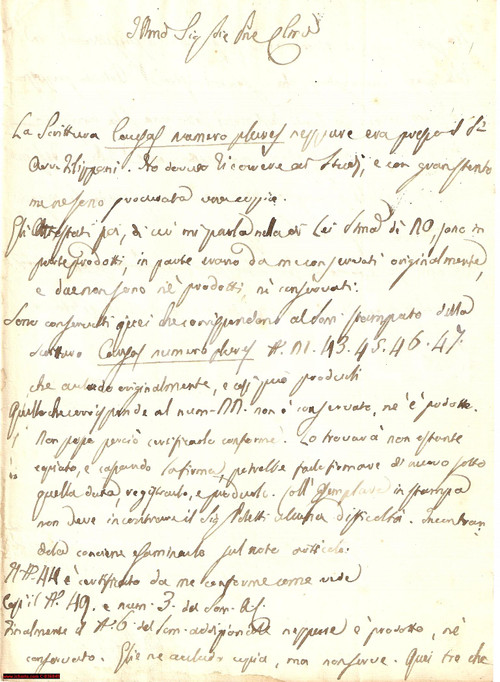 Illmo Sig. Sig. Pne Clmo
La Scrittura Causas numero plures neppure era presso il Sr.
Avv. Filippani. Ho dovuto ricorrere ai Studj, e con gran stento
me ne sono procurata una copia.
Gli Attestati poi, di cui mi parla nella di Lei Sma di 10, sono in
parte prodotti, in parte erano da me conservati originalmente,
e due non sono nè prodotti, nè conservati.
Sono conservati quei che corrispondono al Som. stampato della
Scrittura Causas numero plures N. 11. 43. 45. 46. 47.
che accludo originalmente, e così può produrli
Quello che corrisponde al num. non è conservato, nè è prodotto.
Non posso perciò certificarlo conforme. Lo troverà non ostante
copiato, e sapendo la firma, potrebbe farlo firmare di nuovo sotto
quella data, registrarlo, e produrlo. Coll' Esemplare in stampa
non deve incontrare il Sig. Poletti alcuna difficoltà. Incontran-
dola conviene esaminarlo sul noto articolo.
Il N. 44 è certificato da me conforme come vede
Così il N. 49. e num. 3. del Som.
Finalmente il N. 6. del Som. addizionale neppure è prodotto, nè
conservato. Gliene accludo copia, ma non serve. Quei tre che